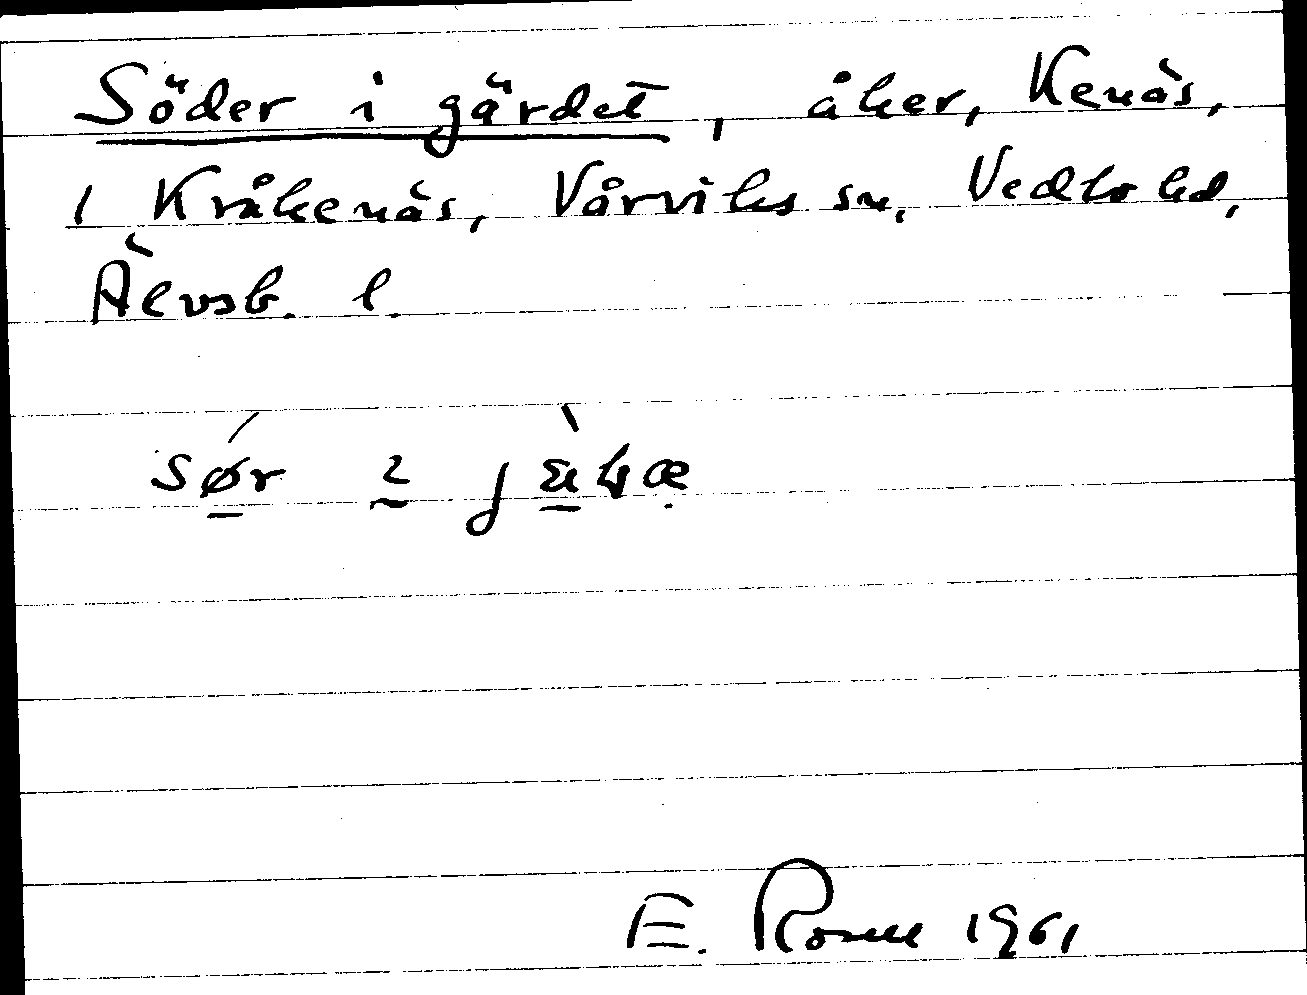 Söder i gärdet, åker, Kenäs,
1 Kråkenäs, Vårviks sn, Vedbo hd,
Älvsb. l.
sør
E. Rosell 1961